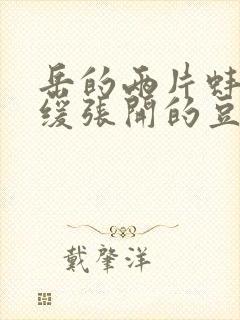 岳的两片蚌
缓张开的豆
戴肇洋